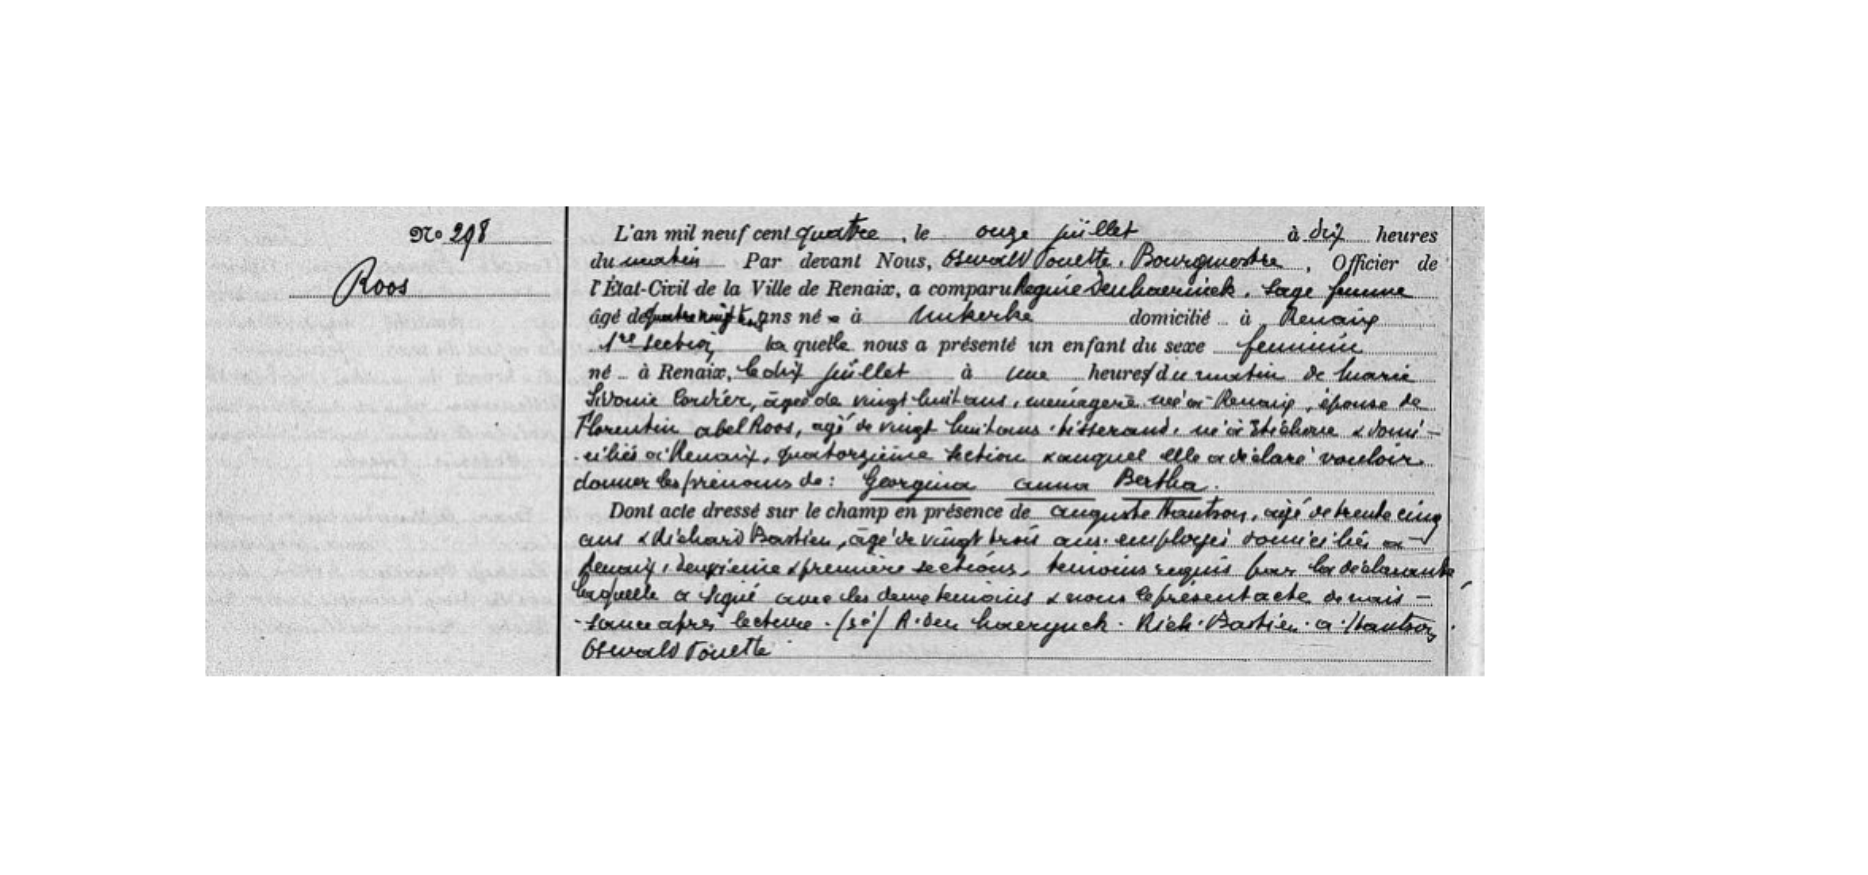 No 298
Roos
L'an mil neuf cent quatre, le onze juillet à dix heures
du matin Par devant Nous, Oswald Pouette, Bourgmestre, Officier de
l'État-Civil de la Ville de Renaix, a comparu Régine Denhaerinck, Sage femme
âgé de quatre vingt ans né à Nukerke domicilié à Renaix
1re section, laquelle nous a présenté un enfant du sexe féminin
né à Renaix, le dix juillet à une heure du matin de Marie
Sidonie Cordier, âgée de vingt huit ans, ménagère née à Renaix, épouse de
Florentin Abel Roos, âgé de vingt huit ans tisserand, né à Etichove & domi-
-ciliés à Renaix, quatorzième section & auquel elle a déclaré vouloir
donner les prénoms de : Georgina Anna Bertha.
Dont acte dressé sur le champ en présence de Auguste Hautson, âgé de trente cinq
ans & Richard Bastien, âgé de vingt trois ans employés domiciliés à
Renaix, deuxième & première sections, témoins requis par la déclarante,
laquelle a signé avec les deux témoins & nous le présent acte de nais-
-sance après lecture. (sé) R. Den haerynck. Rich. Bastien. A. Hautson.
Oswald Pouette